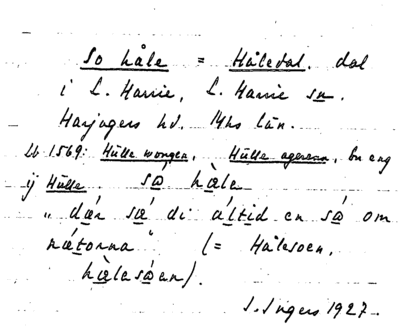 So håle = Håledal. dal
i L. Harrie, L. Harrie sn.
Harjagers hd. Mhs län.
Lb 1569: Hülle wongen, Hülle agerenn, en eng
ij Hülle. så hæle
"dær sæ di altid en så om
nætorna" (= Hålesoen,
hælasåen).
I. Ingers 1927.